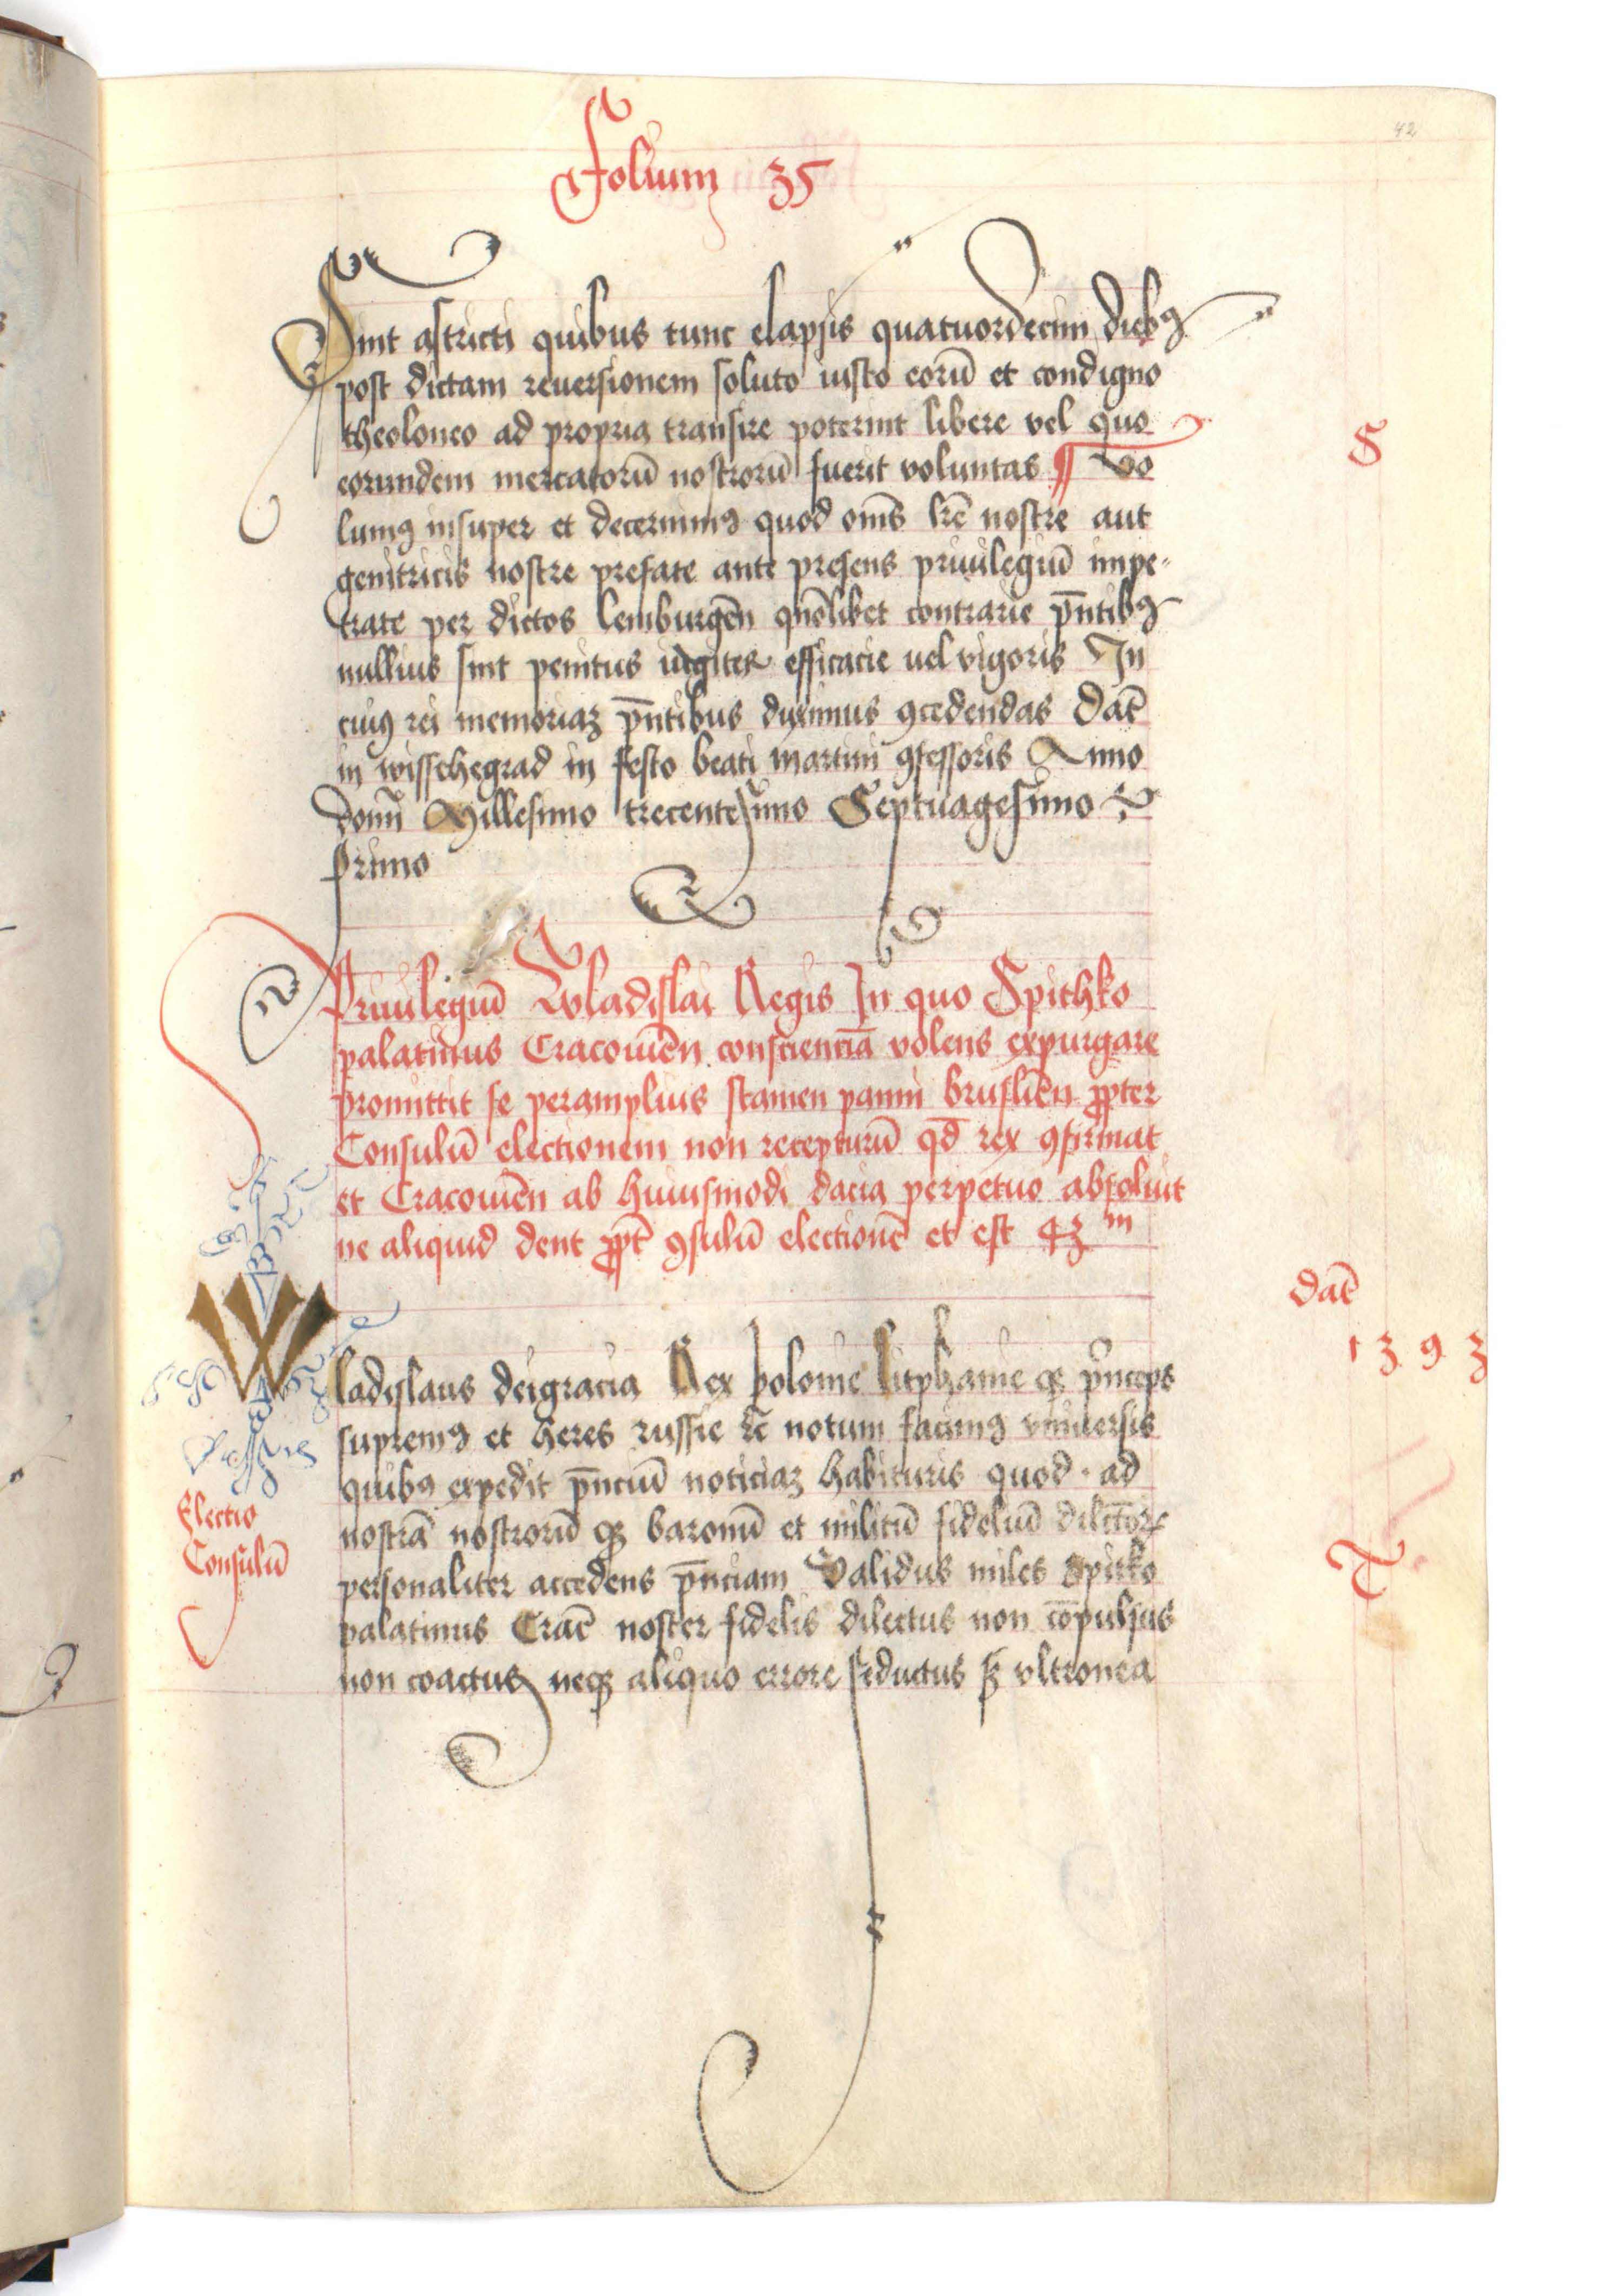 42
Folium 35
Sint astricti quibus tunc elapsis quatuordecim diebꝰ
post dictam reuersionem soluto iusto eorū et condigno
theoloneo ad propria transire poterint libere vel quo
S
eorundem mercatorū nostrorū fuerit voluntas ¶ Vo
lumꝰ insuper et decernimꝰ quod om̄s lr̄e nostre aut
genitricis nostre prefate ante presens priuilegiū impe-
trate per dictos lemburgeñ quo᷒libet contrarie pn̄tibꝰ
nullius sint penitus iugiter efficacie uel vigoris In
cuiꝰ rei memoriaꝫ pn̄tibus duximus ꝯcedendas Dat̄
in wissehegrad in festo beati martini ꝯfessoris Anno
domī Millesimo trecentesimo Septuagesimo
primo
Priuilegiū Wladislai Regis In quo Spithko
palatinus Cracouień conscienciā volens expurgare
promittit se peramplius stamen panni brusliēn ꝓpter
Consulū electionem non recepturū qd̄ rex ꝯfirmat
et Cracouień ab huiusmodi dacia perpetuo absoluit
ne aliquid dent ꝓpt̄ ꝯsulū electionē et est 43 m
Dat̄
1393
Wladislaus deigracia Rex polonie litphanie qꝫ prin̄ceps
supremꝰ et heres russie ꝛc̄ notum facimꝰ vniuersis
quibꝰ expedit pn̄ciū noticiaꝫ habituris quod · ad
Electio
Consulū
nostrā nostrorū qꝫ baronū et militū fideliū dilcōrꝝ
T
personaliter accedens pn̄ciam Validus miles Spitko
palatinus Crac̄ noster fidelis dilectus non cōpulsus
non coactus neqꝫ aliquo errore seductus sꝫ vltronea